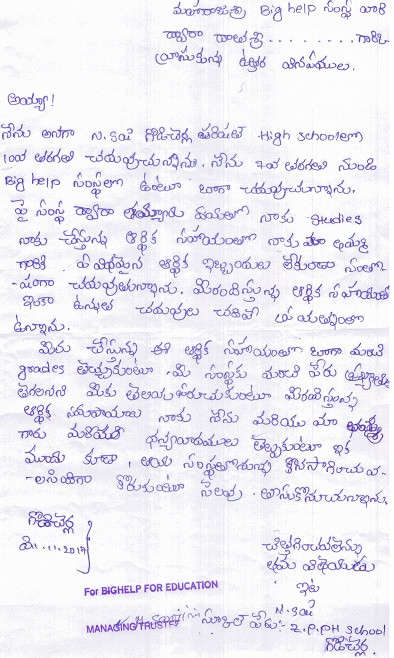 మహారాజశ్రీ Big help సంస్థ వారి
ద్వారా దాతశ్రీ ........ గారికి
వ్రాసుకున్న ఉత్తర వినపములు.
అయ్యా!
నేను అనగా N. సాయి గొడిచెర్ల High schoolలో
10వ తరగతి చదువుచున్నాను. నేను 7వ తరగతి నుండి
Big help సంస్థలో ఉంటూ బాగా చదువుచున్నాను.
పై సంస్థ ద్వారా దయతో నాకు studies
నాకు చేస్తున్న ఆర్థిక సహాయంతో నాకు
గారికి ఏ విధమైన ఆర్థిక ఇబ్బందులు లేకుండా సంతో-
-షంగా చదువుతున్నాను. మీరందిస్తున్న ఆర్థిక సహాయంతో
ఇంకా ఉన్నత చదువులు చదివే ప్రయత్నంలో
ఉన్నాను.
మీరు చేస్తున్న ఈ ఆర్థిక సహాయంతో బాగా మంచి
grades తెచ్చుకుంటూ మీ సంస్థకు మంచి పేరు
తేగలనని మీకు మీరందిస్తున్న
ఆర్థిక నాకు నేను మరియు మా
గారు ధన్యవాదములు తెల్పుకుంటూ ఇక
ముందు కూడా, కొనసాగించ వ-
-లసిందిగా కోరుకుంటూ సెలవు తీసుకొనుచున్నాను.
గొడిచెర్ల
.11.2017
చిత్తగించవలెను
తమ విధేయుడు
ఇట్లు
N. సాయి
For BIGHELP FOR EDUCATION
MANAGING TRUSTEE
స్కూల్ పేరు:- Z.P.P.H school
గొడిచెర్ల.